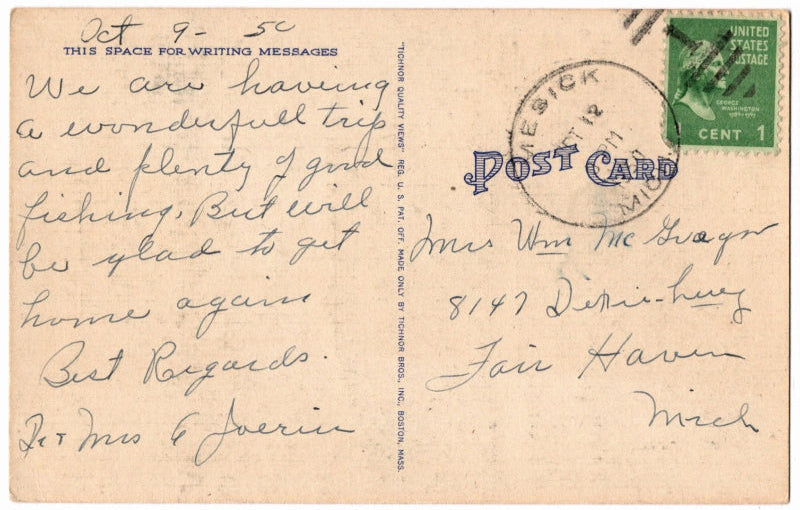 Oct 9- 50
THIS SPACE FOR WRITING MESSAGES
We are having
a wonderfull trip
and plenty of good
fishing. But will
be glad to get
home again
Best Regards.
Mrs
"TICHNOR QUALITY VIEWS" REG. U. S. PAT. OFF. MADE ONLY BY TICHNOR BROS., INC., BOSTON, MASS.
UNITED
STATES
POSTAGE
GEORGE
WASHINGTON
1789-1797
CENT 1
MESICK
12
PM
MICH
POST CARD
Mrs Wm
8147
Fair Haven
Mich